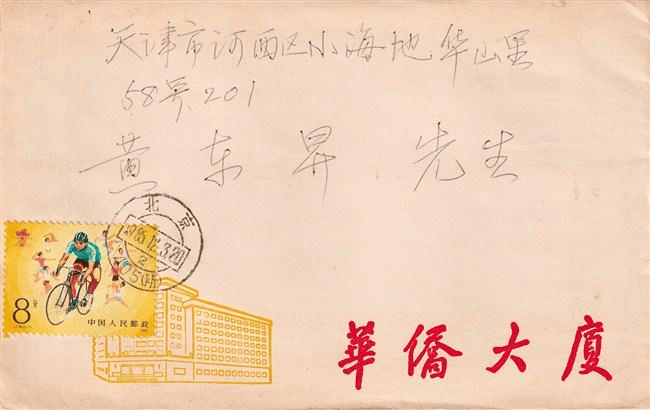 天津市河西区小海地华山里
58号.201
黄东昇先生
北京
8分
中国人民邮政
華僑大廈